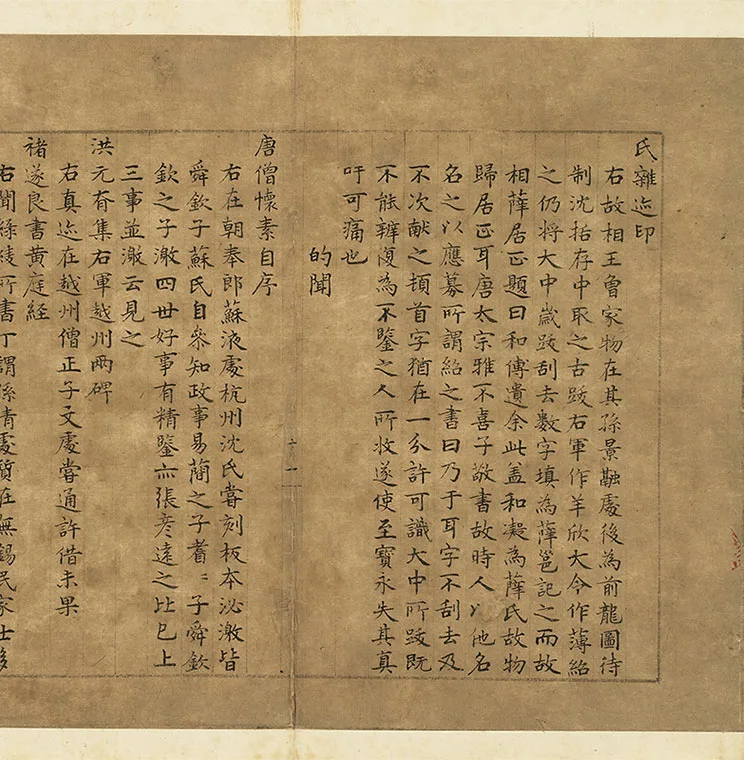 氏雜迹印
右故相王魯家物在其孫景融處後為前龍圖待
制沈括存中取之古跋右軍作羊欣大令作薄紹
之仍將大中歲跋刮去數字填為薛邕記之而故
相薛居正題曰和傳遺余此盖和凝為薛氏故物
歸居正耳唐太宗雅不喜子敬書故時人以他名
名之以應募所謂紹之書曰乃于耳字不刮去及
不次献之頓首字猶在一分許可識大中所跋既
不能辨復為不鑒之人所收遂使至寶永失其真
吁可痛也
的聞
唐僧懷素自序
右在朝奉郎蘇液處杭州沈氏嘗刻板本泌激皆
舜欽子蘇氏自參知政事易簡之子耆〻子舜欽
欽之子激四世好事有精鑒亦張彦遠之比已上
三事並激云見之
洪元眘集右軍越州兩碑
右真迹在越州僧正子文處嘗通許借未果
褚遂良書黄庭経
右聞綠綾所書丁謂孫倩處質在無錫民家士